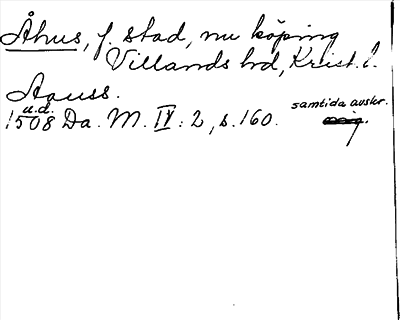 Åhus, f. stad, nu köping
Villands hd, Krist. l.
Aauss.
u.d.
samtida avskr.
1508 Da. M. IV : 2, s. 160.